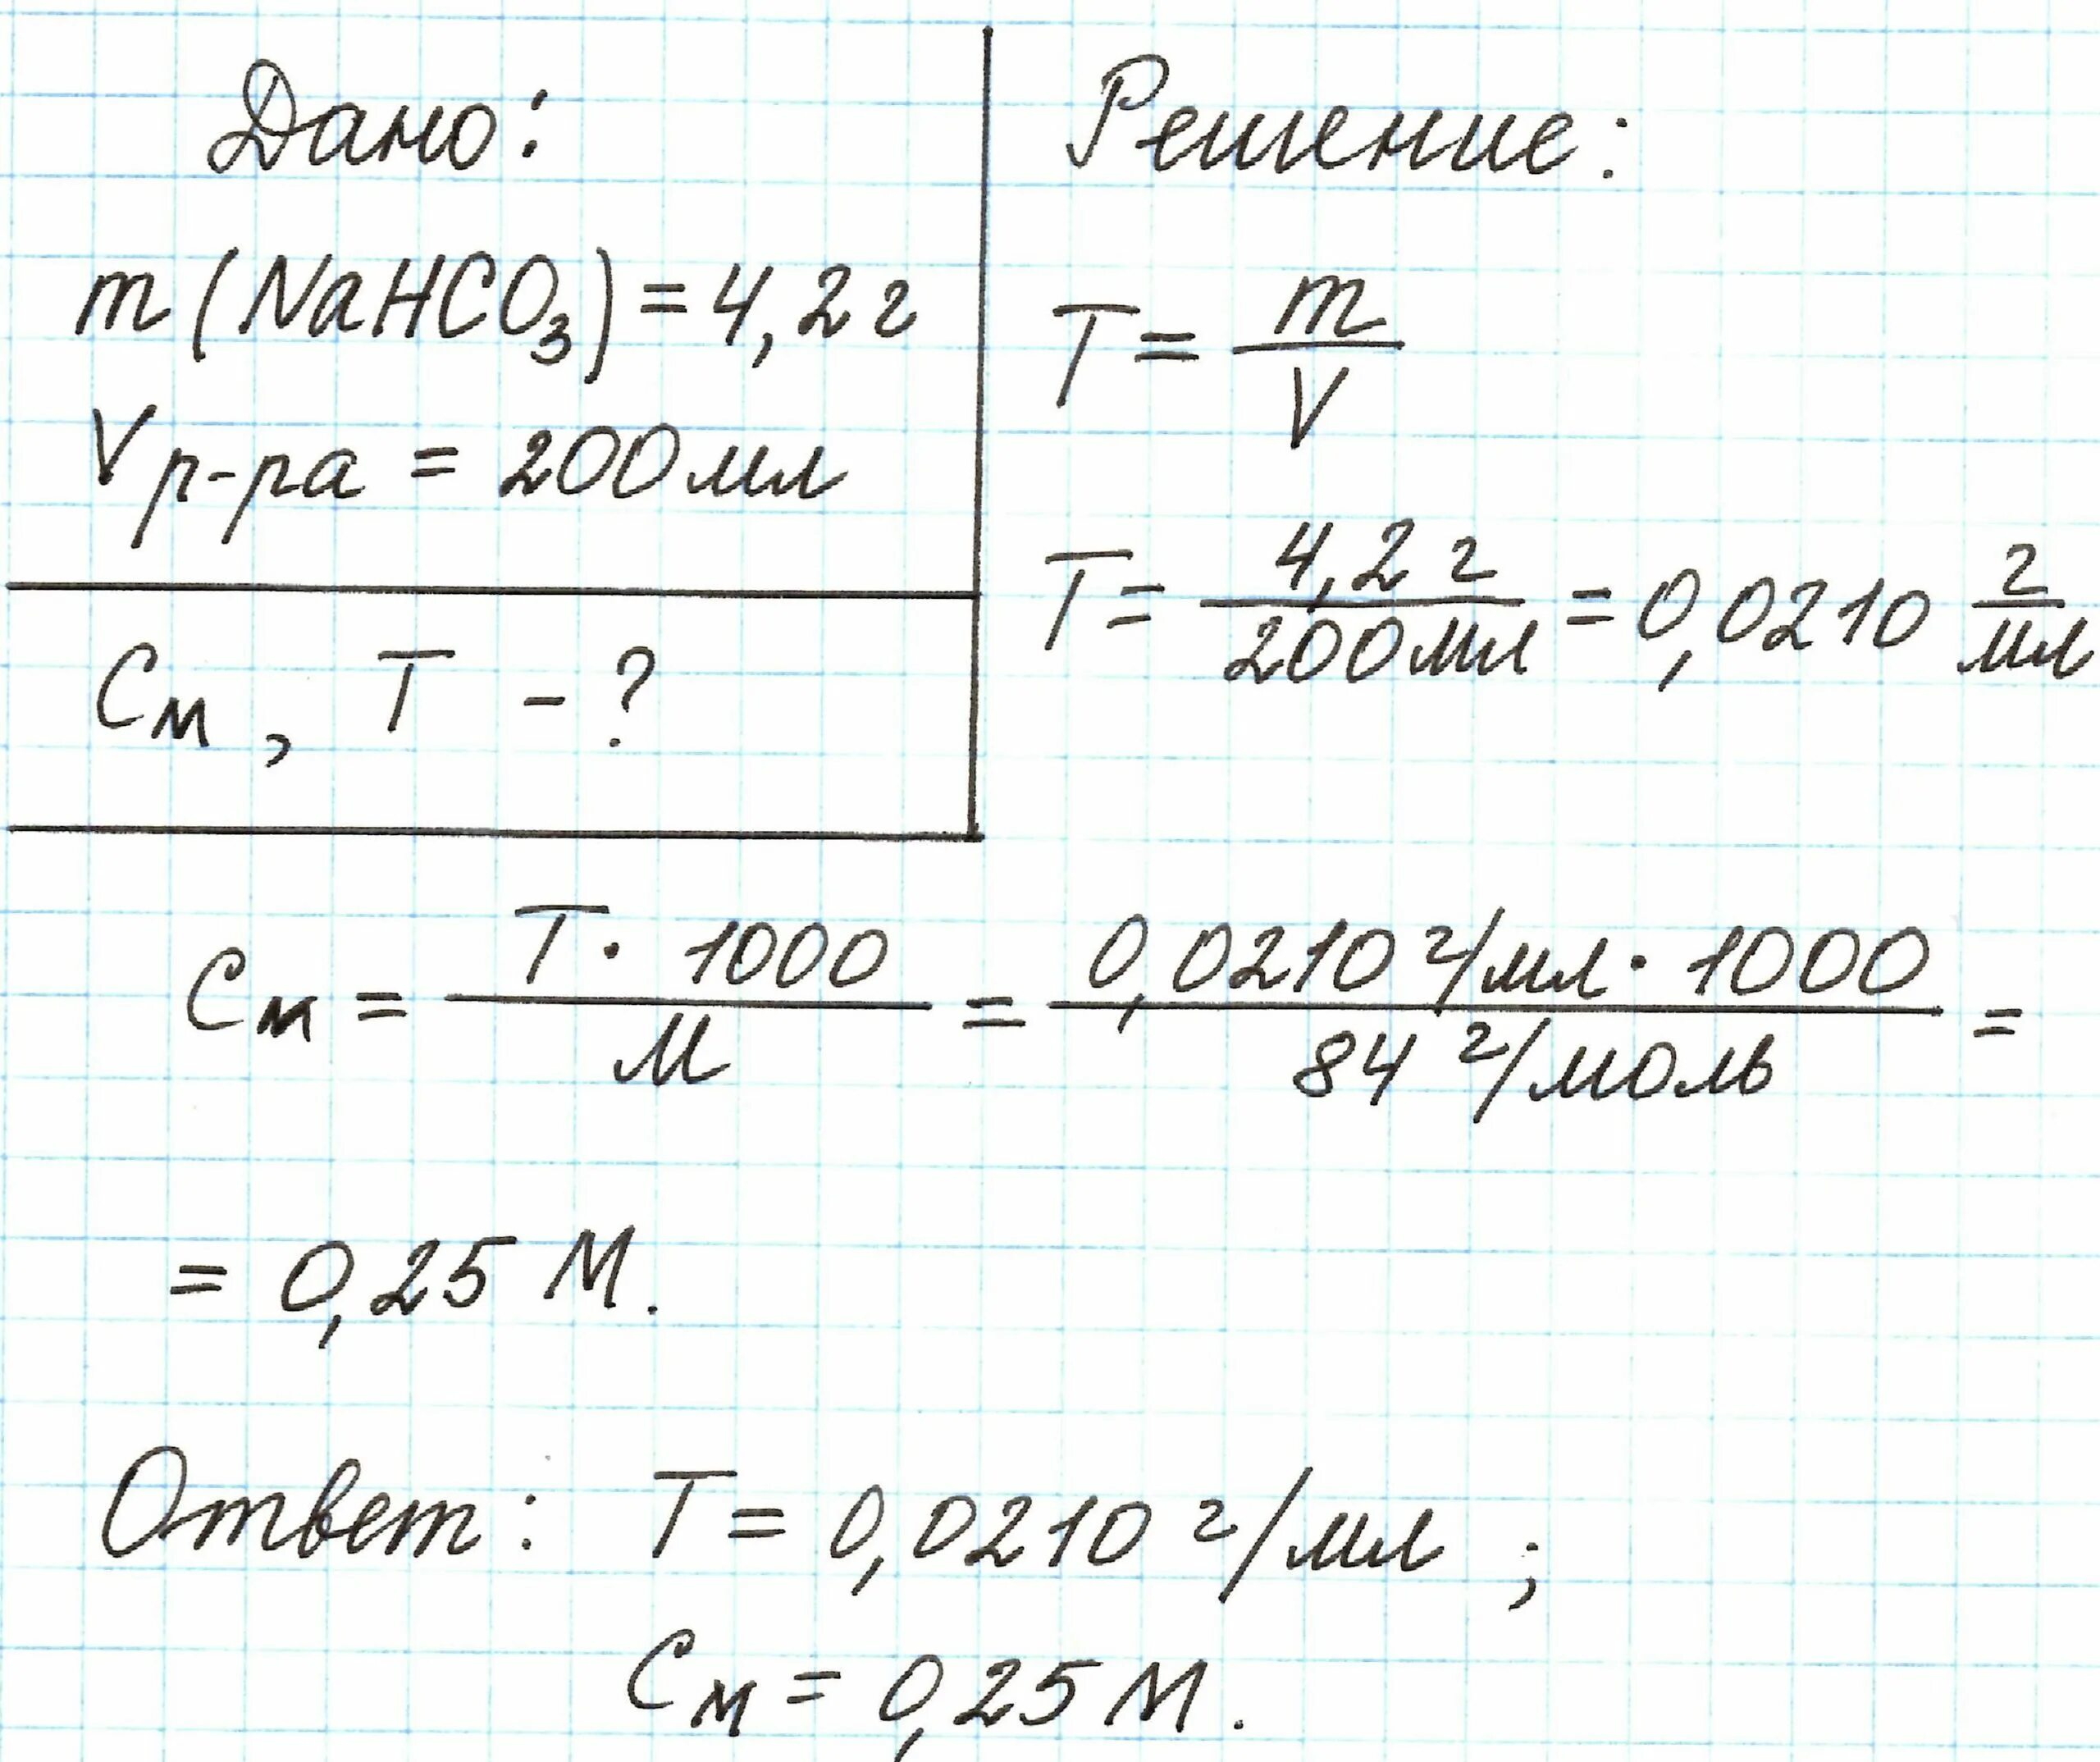 Дано:
m (NaHCO₃) = 4,2 г
Vр-ра = 200 мл
См, T - ?
Решение:
T = m/V
T = 4,2 г/200 мл = 0,0210 г/мл
См = T · 1000/M = 0,0210 г/мл · 1000/84 г/моль =
= 0,25 М.
Ответ: T = 0,0210 г/мл ;
См = 0,25 М.